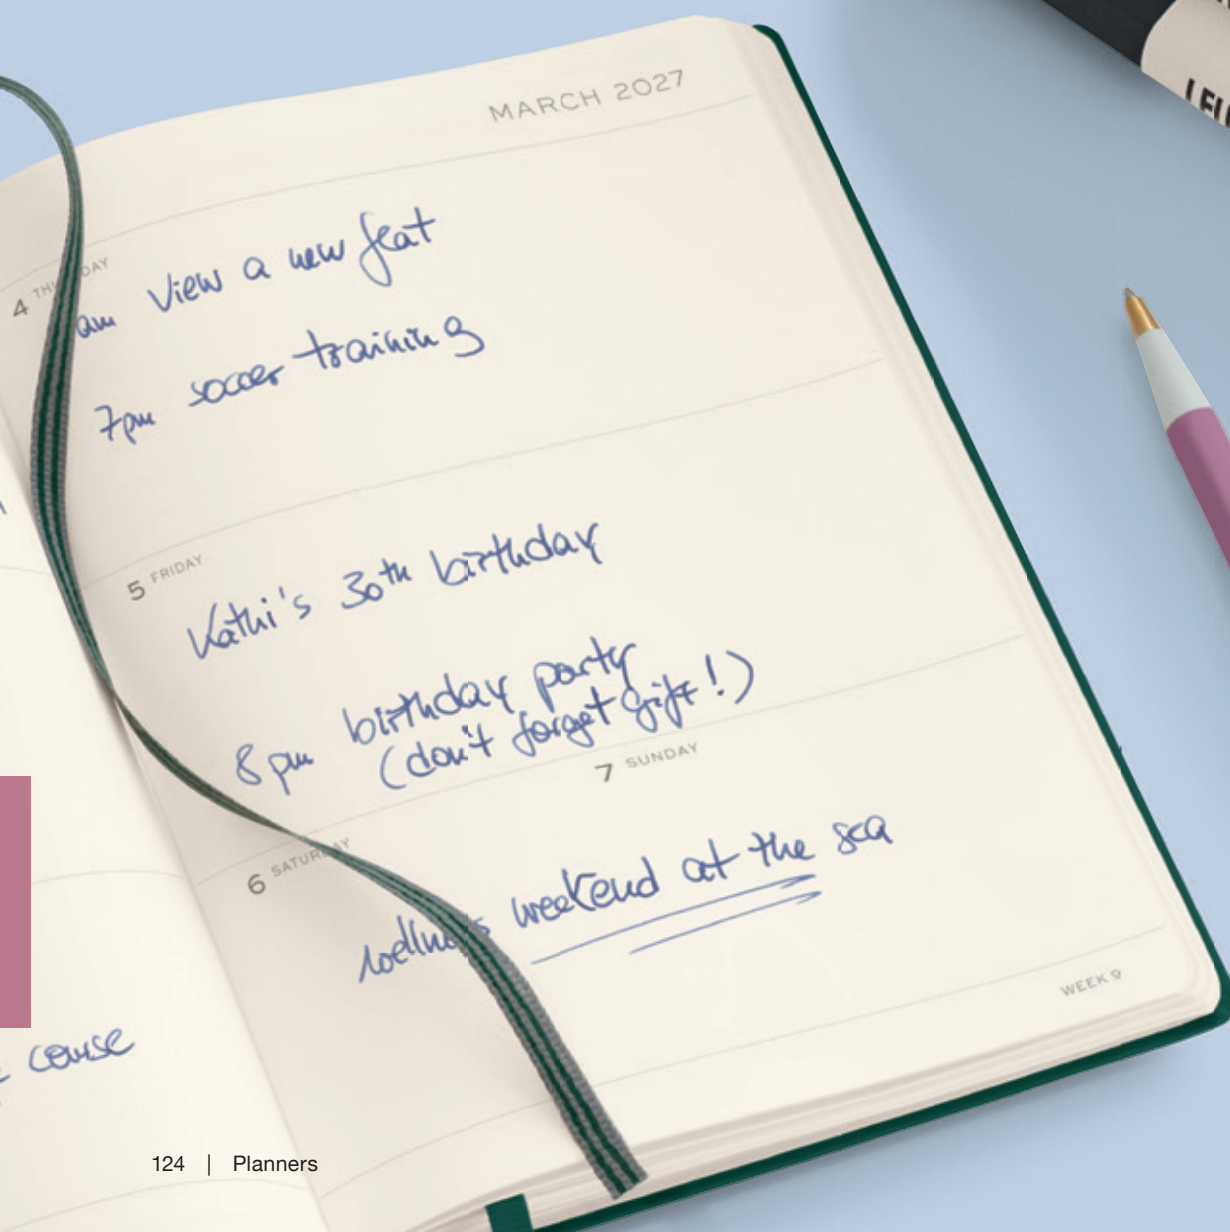 MARCH 2027
4
am View a new flat
7pm soccer training
5 FRIDAY
Kathi's 30th birthday
8 pm birthday party
(don't forget gift!)
6 SATURDAY
7 SUNDAY
wellness weekend at the sea
WEEK 9
course
124 | Planners